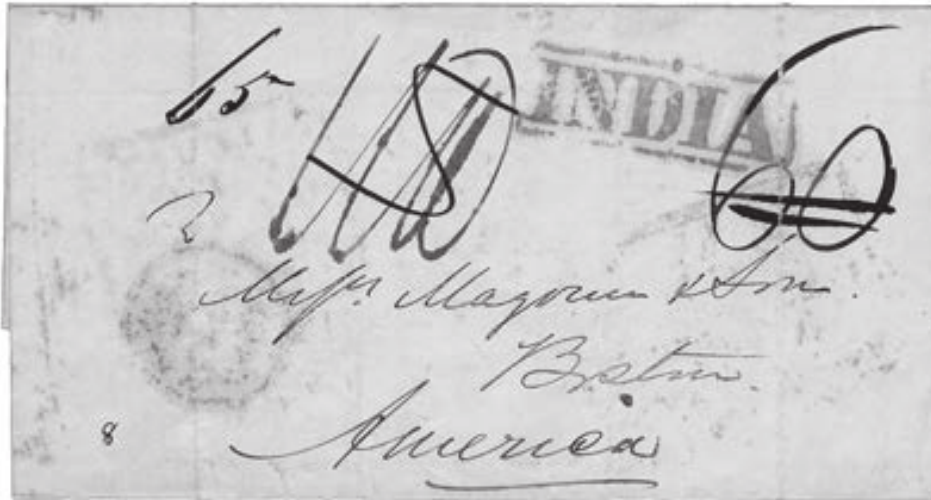 65
INDIA
60
Messrs Magoun & Son.
Boston.
America
8